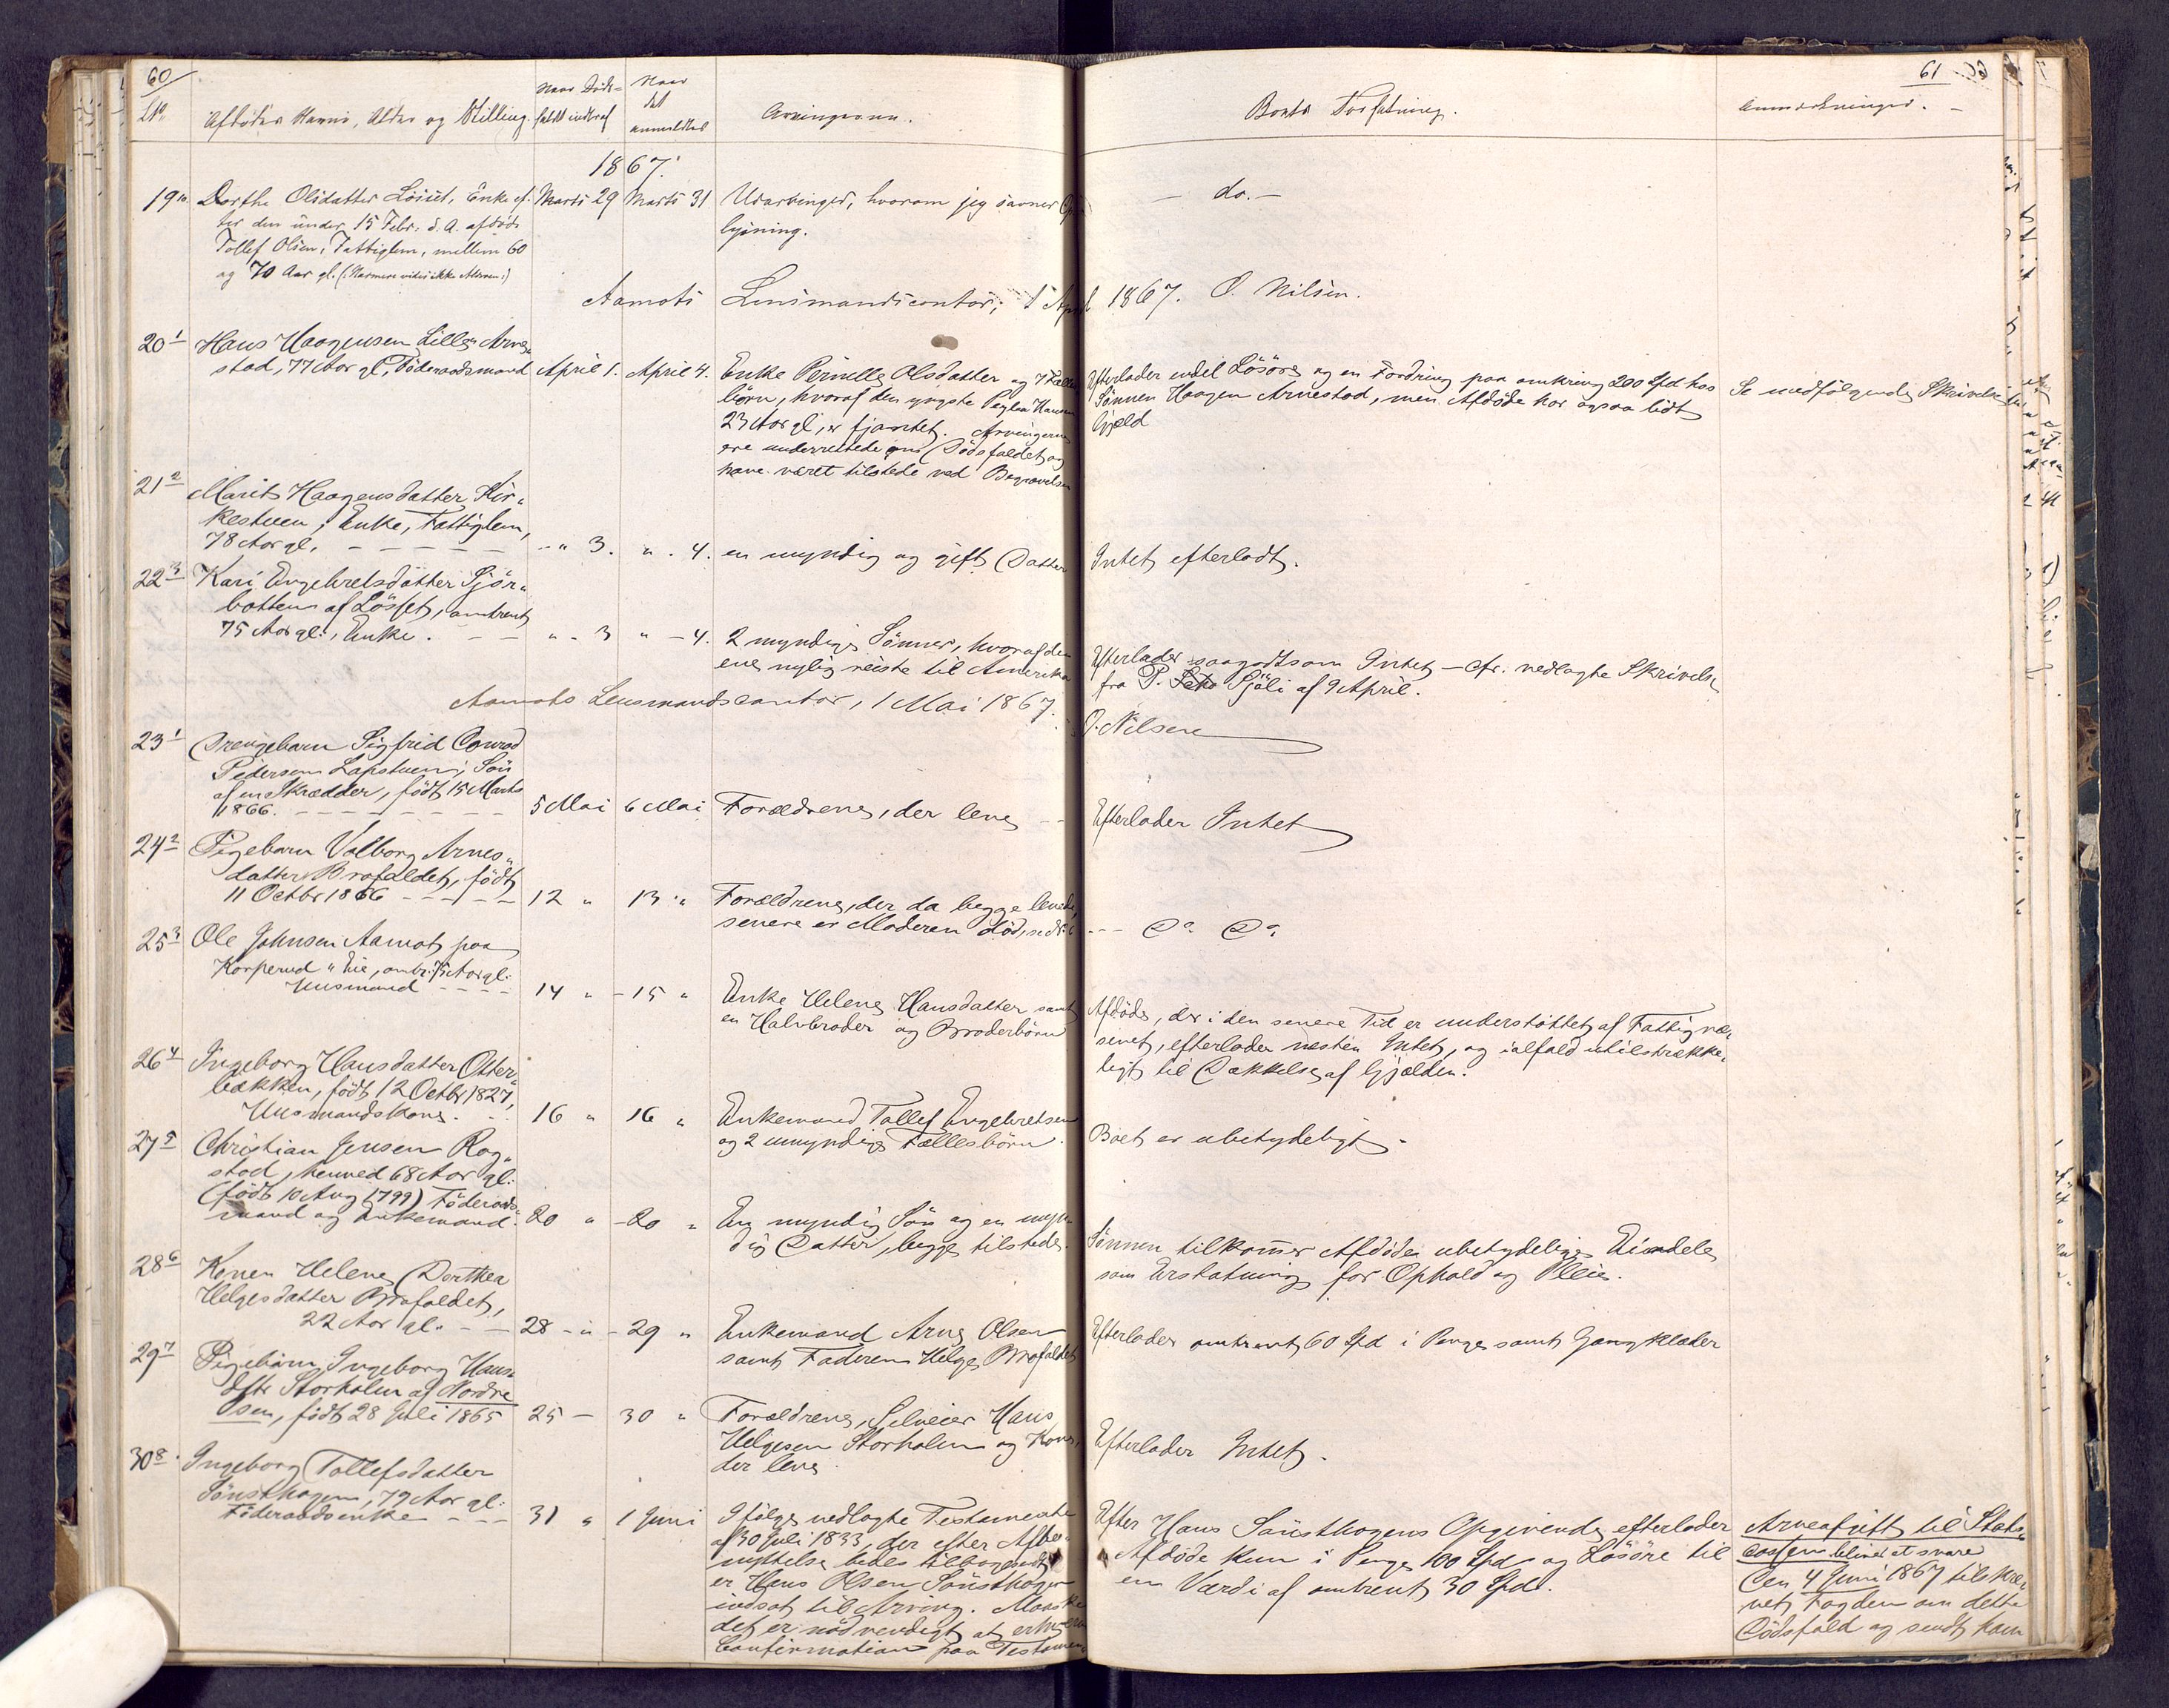 60
No
Afdödes Navn, Alder og Stilling.
Naar Döds-
faldet indtraf
Naar
det
anmeldtes
Arvingerne.
Boets Forfatning.
61
Anmærkninger. -
1867.
19
Dorthe Olsdatter Löset, Enke ef-
ter den under 15 Febr. d. A. afdöde
Tollef Olsen, Fattiglem, mellem 60
og 70 Aar gl. (: Nærmere vides ikke Alderen :)
Marts 29
Marts 31
Udarvinger, hvorom jeg savner Op-
lysning.
- do. -
Aamots Lensmandscontor, 1 April 1867. O. Nilsen.
20 1
Hans Haagensen Lille Arne-
stad, 77 Aar gl., Föderaadsmand
April 1.
April 4.
Enke Pernille Olsdatter og 7 Fælles
börn, hvoraf den yngste
23 Aar gl, er fjantet. Arvingerne
ere underrettede om Dödsfaldet og
have været tilstede ved Begravelsen
Efterlader endel Lösöre og en Fordring paa omkring 200 Spd hos
Sönnen Haagen Arnestad, men Afdöde har ogsaa lidt
Gjeld
Se medfölgende Skrivelse
21 2
Marit Haagensdatter Kir-
kestuen, Enke, Fattiglem,
78 Aar gl. - - - - - -
" 3.
" . 4.
en myndig og gift Datter
Intet efterladt.
22 3
Kari Engebretsdatter Sjör-
botten af Lösset, omtrent
75 Aar gl., Enke. - -
" - 3
" - 4.
2 myndige Sönner, hvoraf den
ene nylig reiste til Amerika
Efterlader saagodtsom Intet - cfr. vedlagte Skrivelse
fra P. Sjöli af 9 April.
Aamots Lensmandscontor, 1 Mai 1867.
O. Nilsen
23 1
Drengebarn Sigfrid Conrad
Pedersen Lapstuen, Sön
af en Skrædder, födt 15 Marts
1866. - - - - - - - -
5 Mai
6 Mai
Forældrene, der leve - -
Efterlader Intet
24 2
Pigebarn Valborg Arnes-
datter Brofaldet, födt
11 Octbr 1866 - - - - -
12 "
13 "
Forældrene, der da begge levede,
senere er Moderen död, se No 6
- - - Do Do
25 3
Ole Johnsen Aamot, paa
Korperud " Eie, omtr. 75 Aar gl.
Husmand - - - -
14 "
- 15 "
Enke Helene Hansdatter samt
en Halvbroder og Broderbörn
Afdöde, der i den senere Tid er understöttet af Fattigvæ-
senet, efterlader næsten Intet, og ialfald utilstrække-
ligt til Dækkelse af Gjælden.
26 4
Ingeborg Hansdatter Otter-
bækken, födt 12 Octbr 1827,
Husmandskone.
16 "
16 "
Enkemand Tollef Engebretsen
og 2 umyndige Fællesbörn.
Boet er ubetydeligt.
27 5
Christian Jensen Rog-
stad, henved 68 Aar gl.
(födt 10 Aug 1799) Föderaads-
mand og Enkemand.
20 "
- 20 "
En myndig Sön og en myn-
dig Datter, begge tilstede.
Sönnen tilkommer Afdödes ubetydelige Eiendele
som Erstatning for Ophold og Pleie.
28 6
Konen Helene Dorthea
Helgesdatter Brofaldet,
22 Aar gl. - -
28 - "
- 29 "
Enkemand Arne Olsen
samt Faderen Helge Brofaldet
Efterlader omtrent 60 Spd i Penge samt Gangklæder
29 7
Pigebarn Ingeborg Hans-
dtr Storholm af Nordre
Osen, födt 28 Juli 1865
25 -
30 "
Forældrene, Selveier Hans
Helgesen Storholm og Kone,
der leve
Efterlader Intet.
30 8
Ingeborg Tollefsdatter
Sönsthagen, 79 Aar gl.
Föderaadsenke - - -
31 "
1 Juni
Ifölge vedlagte Testamente
af 30 Juli 1833, der efter Afbe-
nyttelse bedes tilbagesendt
er Hans Olsen Sönsthagen
indsat til Arving. Maaske
det er nödvendigt at erhverve
Confirmation paa Testamen-
Efter Hans Sönsthagens Opgivende efterlader
Afdöde kun i Penge 100 Spd og Lösöre til
en Værdi af omtrent 30 Spd.
Arveafgift til Stats-
cassen bliver at svare
Den 4 Juni 1867 tilskre-
vet Fogden om dette
Dödsfald og sendt ham